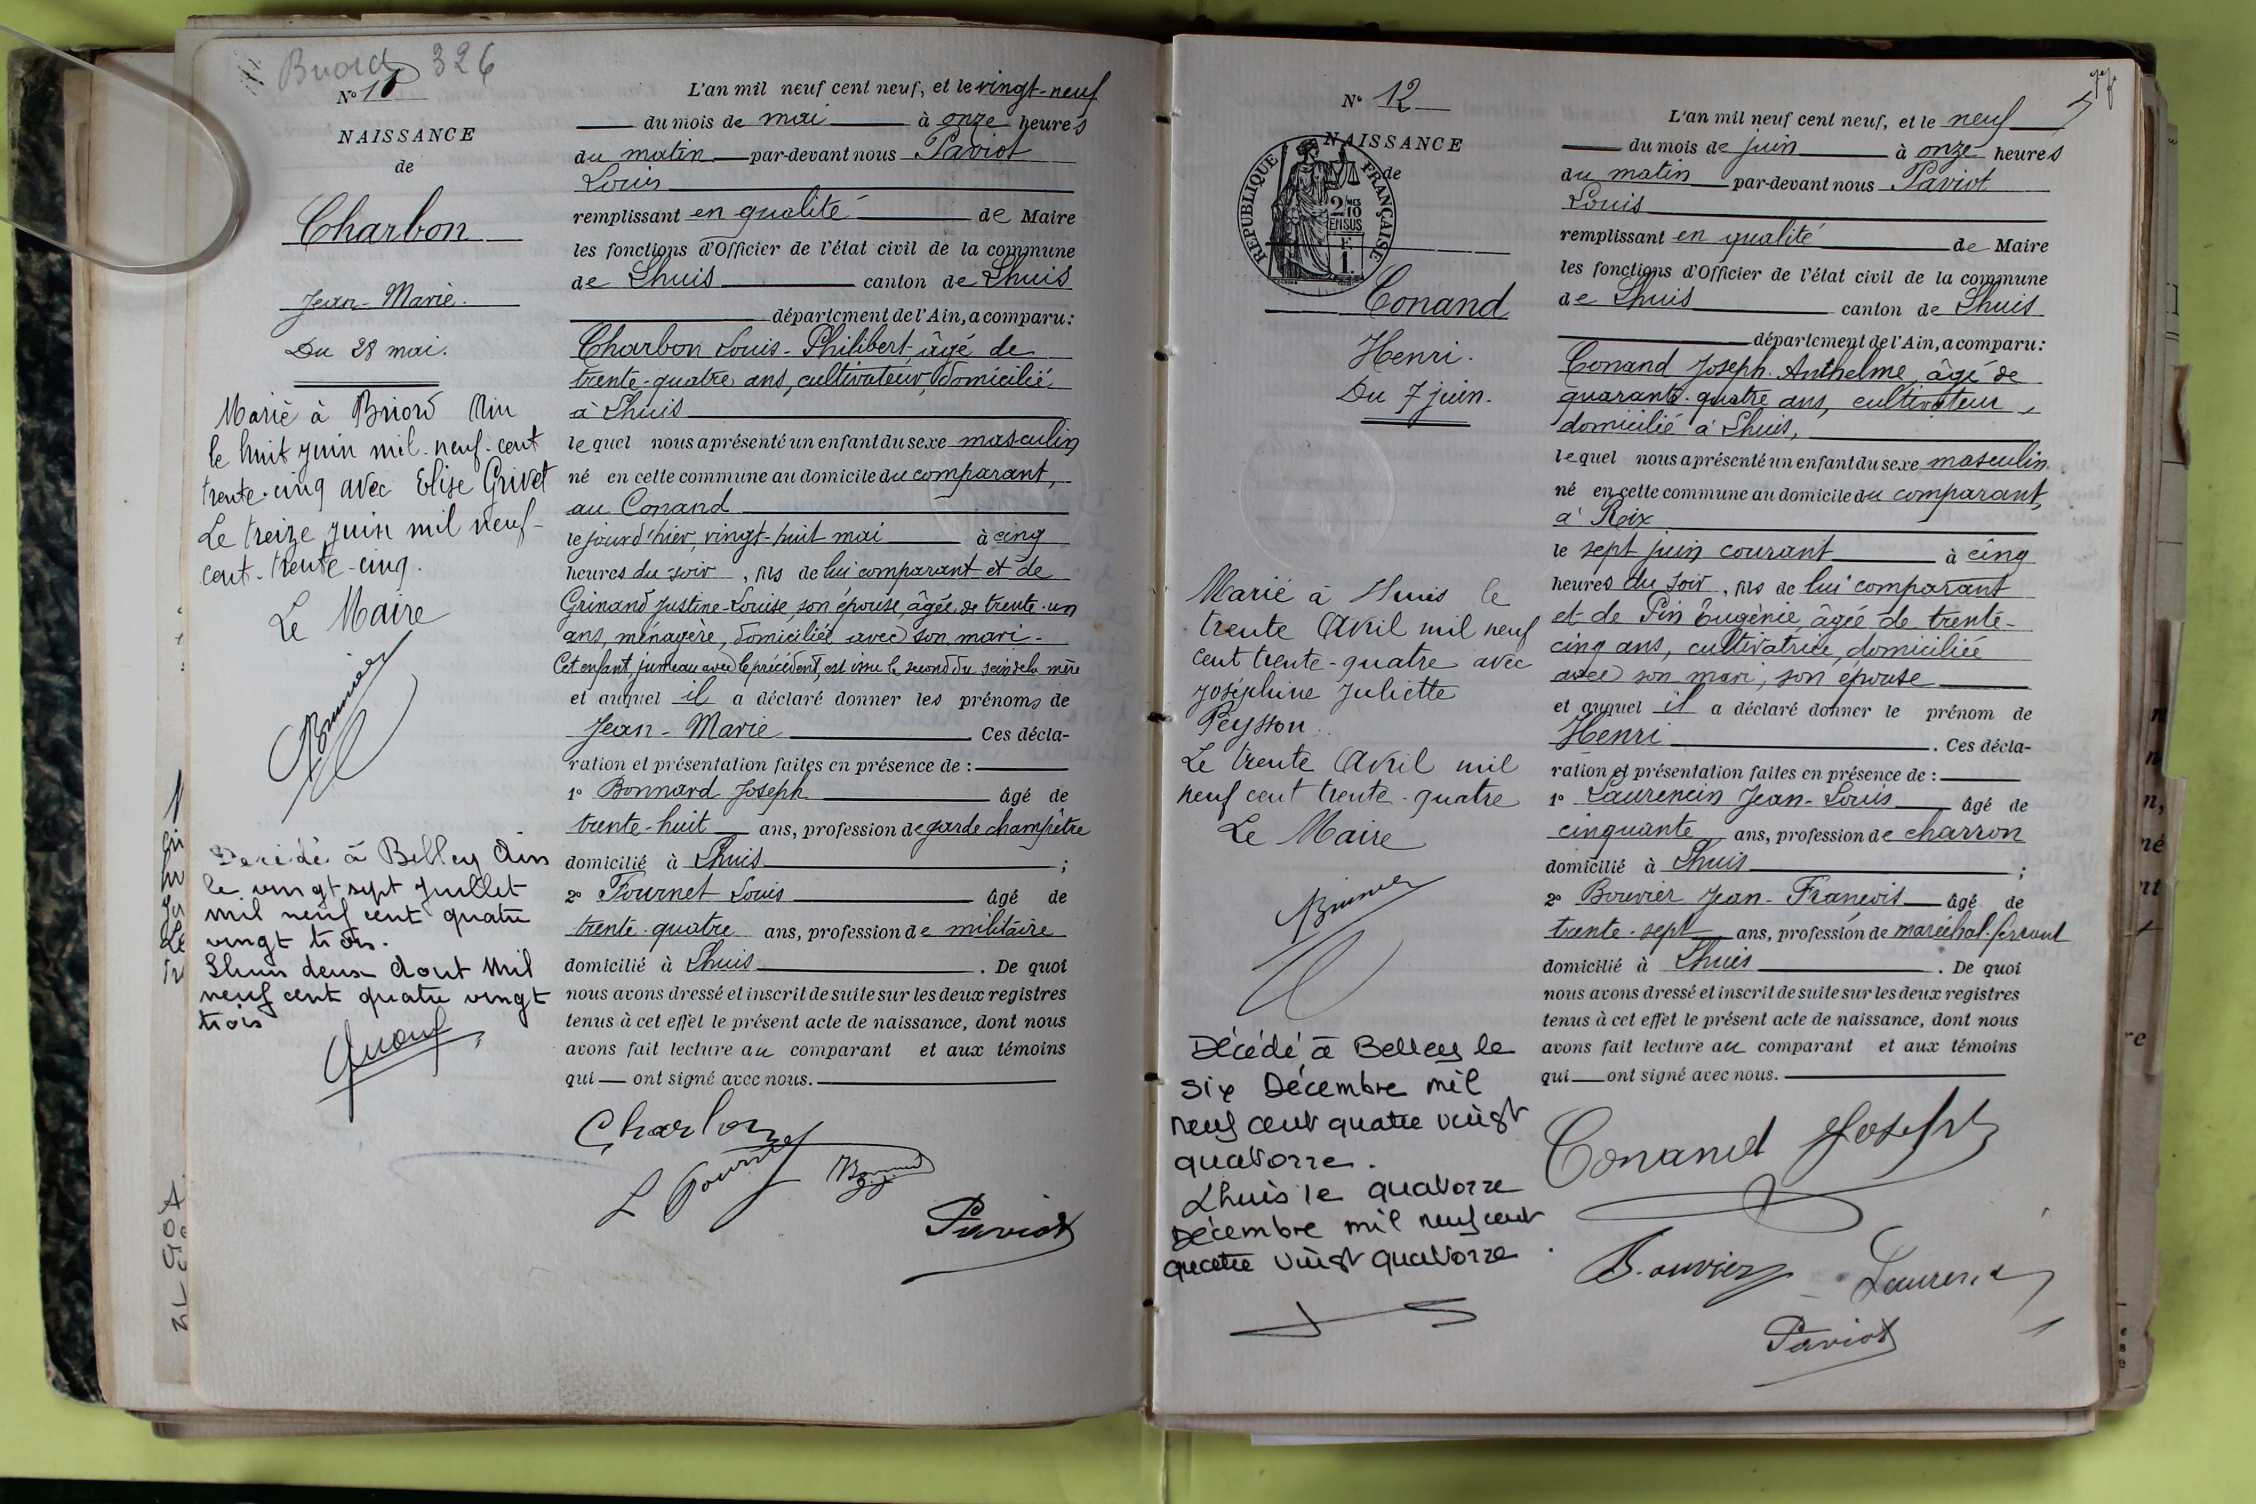 Briord 326
N° 11
NAISSANCE
de
Charbon
Jean-Marie.
Du 28 mai.
Marié à Briord Ain
le huit juin mil-neuf-cent
trente-cinq avec Elise Grivet
Le treize juin mil neuf-
cent-trente-cinq.
Le Maire
Décédé à Belley Ain
le vingt sept Juillet
mil neuf cent quatre
vingt trois.
Lhuis deux Aout mil
neuf cent quatre vingt
trois
L'an mil neuf cent neuf, et le vingt-neuf
du mois de mai à onze heures
du matin par-devant nous Paviot
Louis
remplissant en qualité de Maire
les fonctions d'Officier de l'état civil de la commune
de Lhuis canton de Lhuis
département de l'Ain, a comparu:
Charbon Louis-Philibert, âgé de
trente-quatre ans, cultivateur, domicilié
à Lhuis
lequel nous a présenté un enfant du sexe masculin
né en cette commune au domicile du comparant,
au Conand
le jour d'hier, vingt-huit mai à cinq
heures du soir, fils de lui comparant et de
Grinand Justine-Louise, son épouse, âgée de trente-un
ans, ménagère, domiciliée avec son mari-
Cet enfant, jumeau avec le précédent, est issu le second du sein de la mère
et auquel il a déclaré donner les prénoms de
Jean-Marie Ces décla-
ration et présentation faites en présence de :
1° Bonnard Joseph âgé de
trente-huit ans, profession de garde champêtre
domicilié à Lhuis ;
2° Fournet Louis âgé de
trente-quatre ans, profession de militaire
domicilié à Lhuis . De quoi
nous avons dressé et inscrit de suite sur les deux registres
tenus à cet effet le présent acte de naissance, dont nous
avons fait lecture au comparant et aux témoins
qui ont signé avec nous.
Charbon
L Fournet Bonnard
Paviot
N° 12
NAISSANCE
de
REPUBLIQUE FRANÇAISE
2/10 MES
EN SUS
F.
1.
Conand
Henri.
Du 7 juin.
Marié à Lhuis le
trente Avril mil neuf
cent trente-quatre avec
Joséphine Juliette
Peysson.
Le trente Avril mil
neuf cent trente-quatre
Le Maire
Décédé à Belley le
six Décembre mil
neuf cent quatre vingt
quatorze.
Lhuis le quatorze
Décembre mil neuf cent
quatre vingt quatorze.
L'an mil neuf cent neuf, et le neuf
du mois de juin à onze heures
du matin par-devant nous Paviot
Louis
remplissant en qualité de Maire
les fonctions d'Officier de l'état civil de la commune
de Lhuis canton de Lhuis
département de l'Ain, a comparu:
Conand Joseph-Anthelme, âgé de
quarante-quatre ans, cultivateur,
domicilié à Lhuis,
lequel nous a présenté un enfant du sexe masculin
né en cette commune au domicile du comparant,
à Rix
le sept juin courant à cinq
heures du soir, fils de lui comparant
et de Pin Eugénie âgée de trente-
cinq ans, cultivatrice, domiciliée
avec son mari, son épouse
et auquel il a déclaré donner le prénom de
Henri . Ces décla-
ration et présentation faites en présence de :
1° Laurencin Jean-Louis âgé de
cinquante ans, profession de charron
domicilié à Lhuis ;
2° Bouvier Jean-François âgé de
trente-sept ans, profession de maréchal-ferrant
domicilié à Lhuis . De quoi
nous avons dressé et inscrit de suite sur les deux registres
tenus à cet effet le présent acte de naissance, dont nous
avons fait lecture au comparant et aux témoins
qui ont signé avec nous.
Conand Joseph
Bouvier Laurencin
Paviot